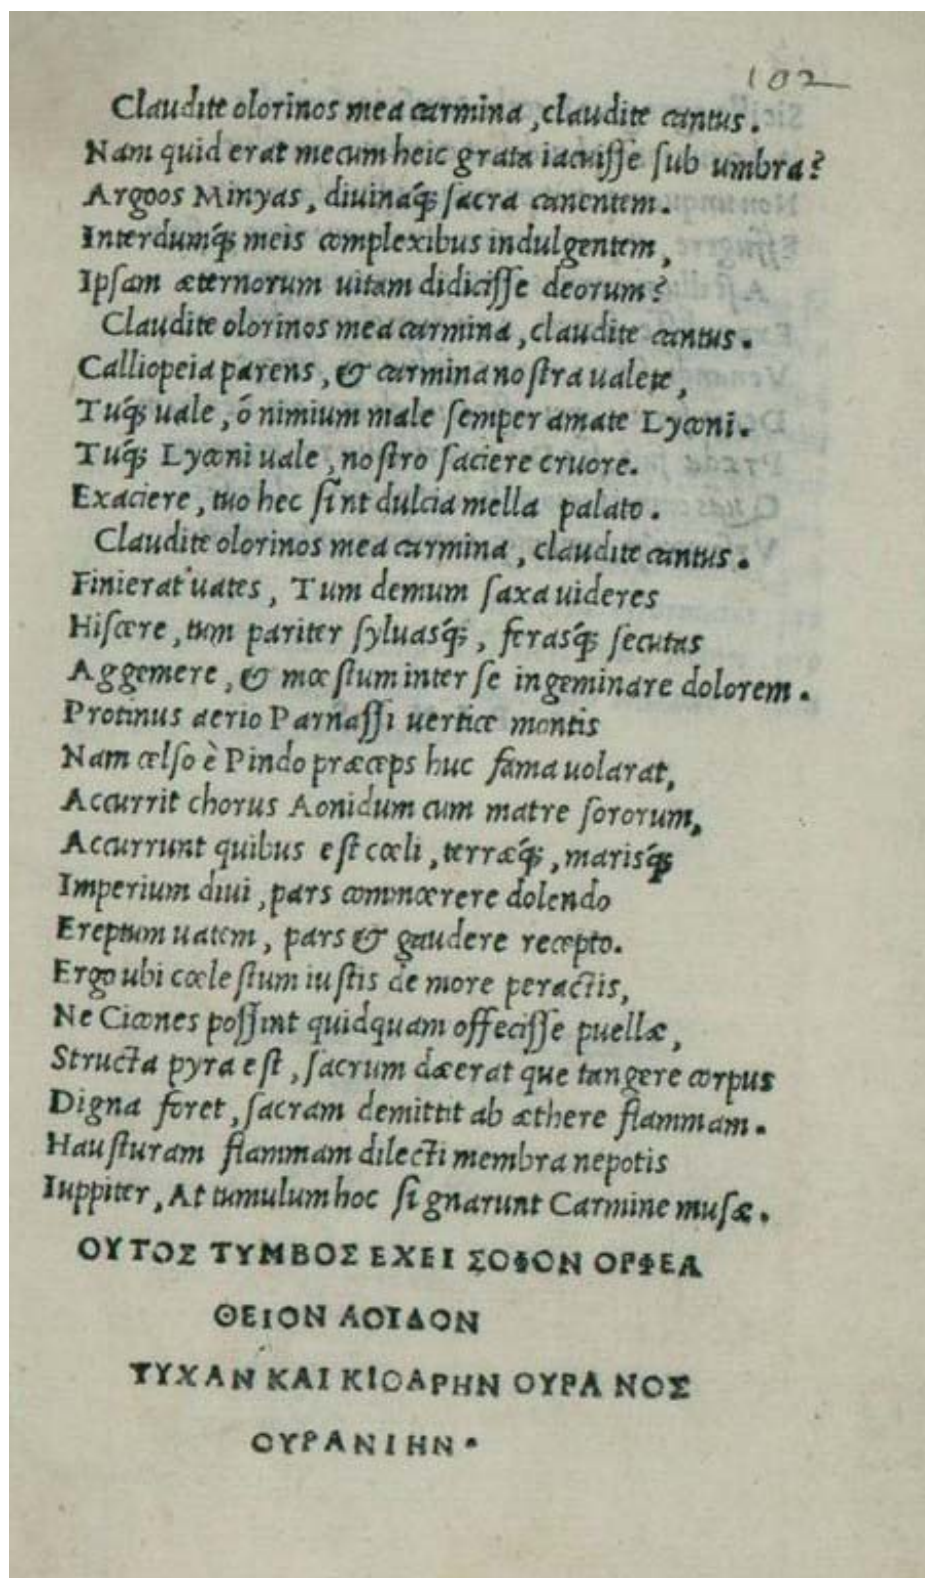 102
Claudite olorinos mea carmina, claudite cantus.
Nam quid erat mecum heic grata iacuisse sub umbra?
Argoos Minyas, diuinaq́; sacra canentem.
Interdumq́; meis complexibus indulgentem,
Ipsam æternorum uitam didicisse deorum?
Claudite olorinos mea carmina, claudite cantus.
Calliopeia parens, & carmina nostra ualete,
Tuq́; uale, ó nimium male semper amate Lycæoni.
Tuq́; Lycæoni uale, nostro saciere cruore.
Exaciere, tuo hec sint dulcia mella palato.
Claudite olorinos mea carmina, claudite cantus.
Finierat uates, Tum demum saxa uideres
Hiscere, tum pariter syluasq́;, ferasq́; secutas
Aggemere, & mœstum inter se ingeminare dolorem.
Protinus aerio Parnassi uertice montis
Nam celso è Pindo præceps huc fama uolarat,
Accurrit chorus Aonidum cum matre sororum,
Accurrunt quibus est cœli, terræq́;, marisq́;
Imperium diui, pars commœrere dolendo
Ereptum uatem, pars & gaudere recepto.
Ergo ubi cœlestum iustis de more peractis,
Ne Cicones possint quidquam offecisse puellæ,
Structa pyra est, sacrum dæerat que tangere corpus
Digna foret, sacram demittit ab æthere flammam.
Hausturam flammam dilecti membra nepotis
Iuppiter, At tumulum hoc signarunt Carmine musæ.
ΟΥΤΟΣ ΤΥΜΒΟΣ ΕΧΕΙ ΣΟΦΟΝ ΟΡΦΕΑ
ΘΕΙΟΝ ΑΟΙΔΟΝ
ΤΥΧΑΝ ΚΑΙ ΚΙΘΑΡΗΝ ΟΥΡΑ ΝΟΣ
ΟΥΡΑΝΙΗΝ.